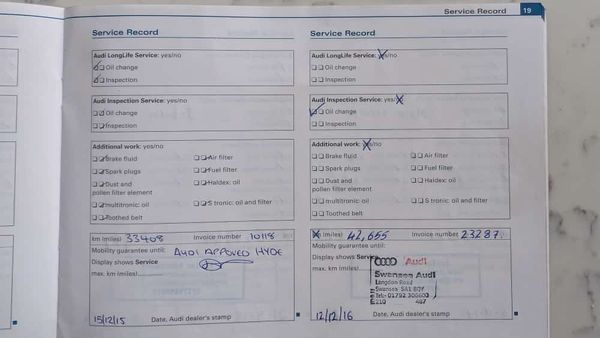 Service Record 19
Service Record
Audi LongLife Service: yes/no
Oil change
Inspection
Audi Inspection Service: yes/no
Oil change
Inspection
Additional work: yes/no
Brake fluid Air filter
Spark plugs Fuel filter
Dust and Haldex: oil
pollen filter element
multitronic: oil S tronic: oil and filter
Toothed belt
km (miles) 33408 Invoice number 10118
Mobility guarantee until: AUDI APPOVED HYDE
Display shows Service
max. km (miles)
15/12/15 Date, Audi dealer's stamp
Service Record
Audi LongLife Service: yes/no
Oil change
Inspection
Audi Inspection Service: yes/no
Oil change
Inspection
Additional work: yes/no
Brake fluid Air filter
Spark plugs Fuel filter
Dust and Haldex: oil
pollen filter element
multitronic: oil S tronic: oil and filter
Toothed belt
km (miles) 42,655 Invoice number 23287
Mobility guarantee until:
Display shows Service
Audi
max. km (miles)
Swansea Audi
Langdon Road
Swansea SA1 8QY
Tel: 01792 300600
487
12/12/16 Date, Audi dealer's stamp